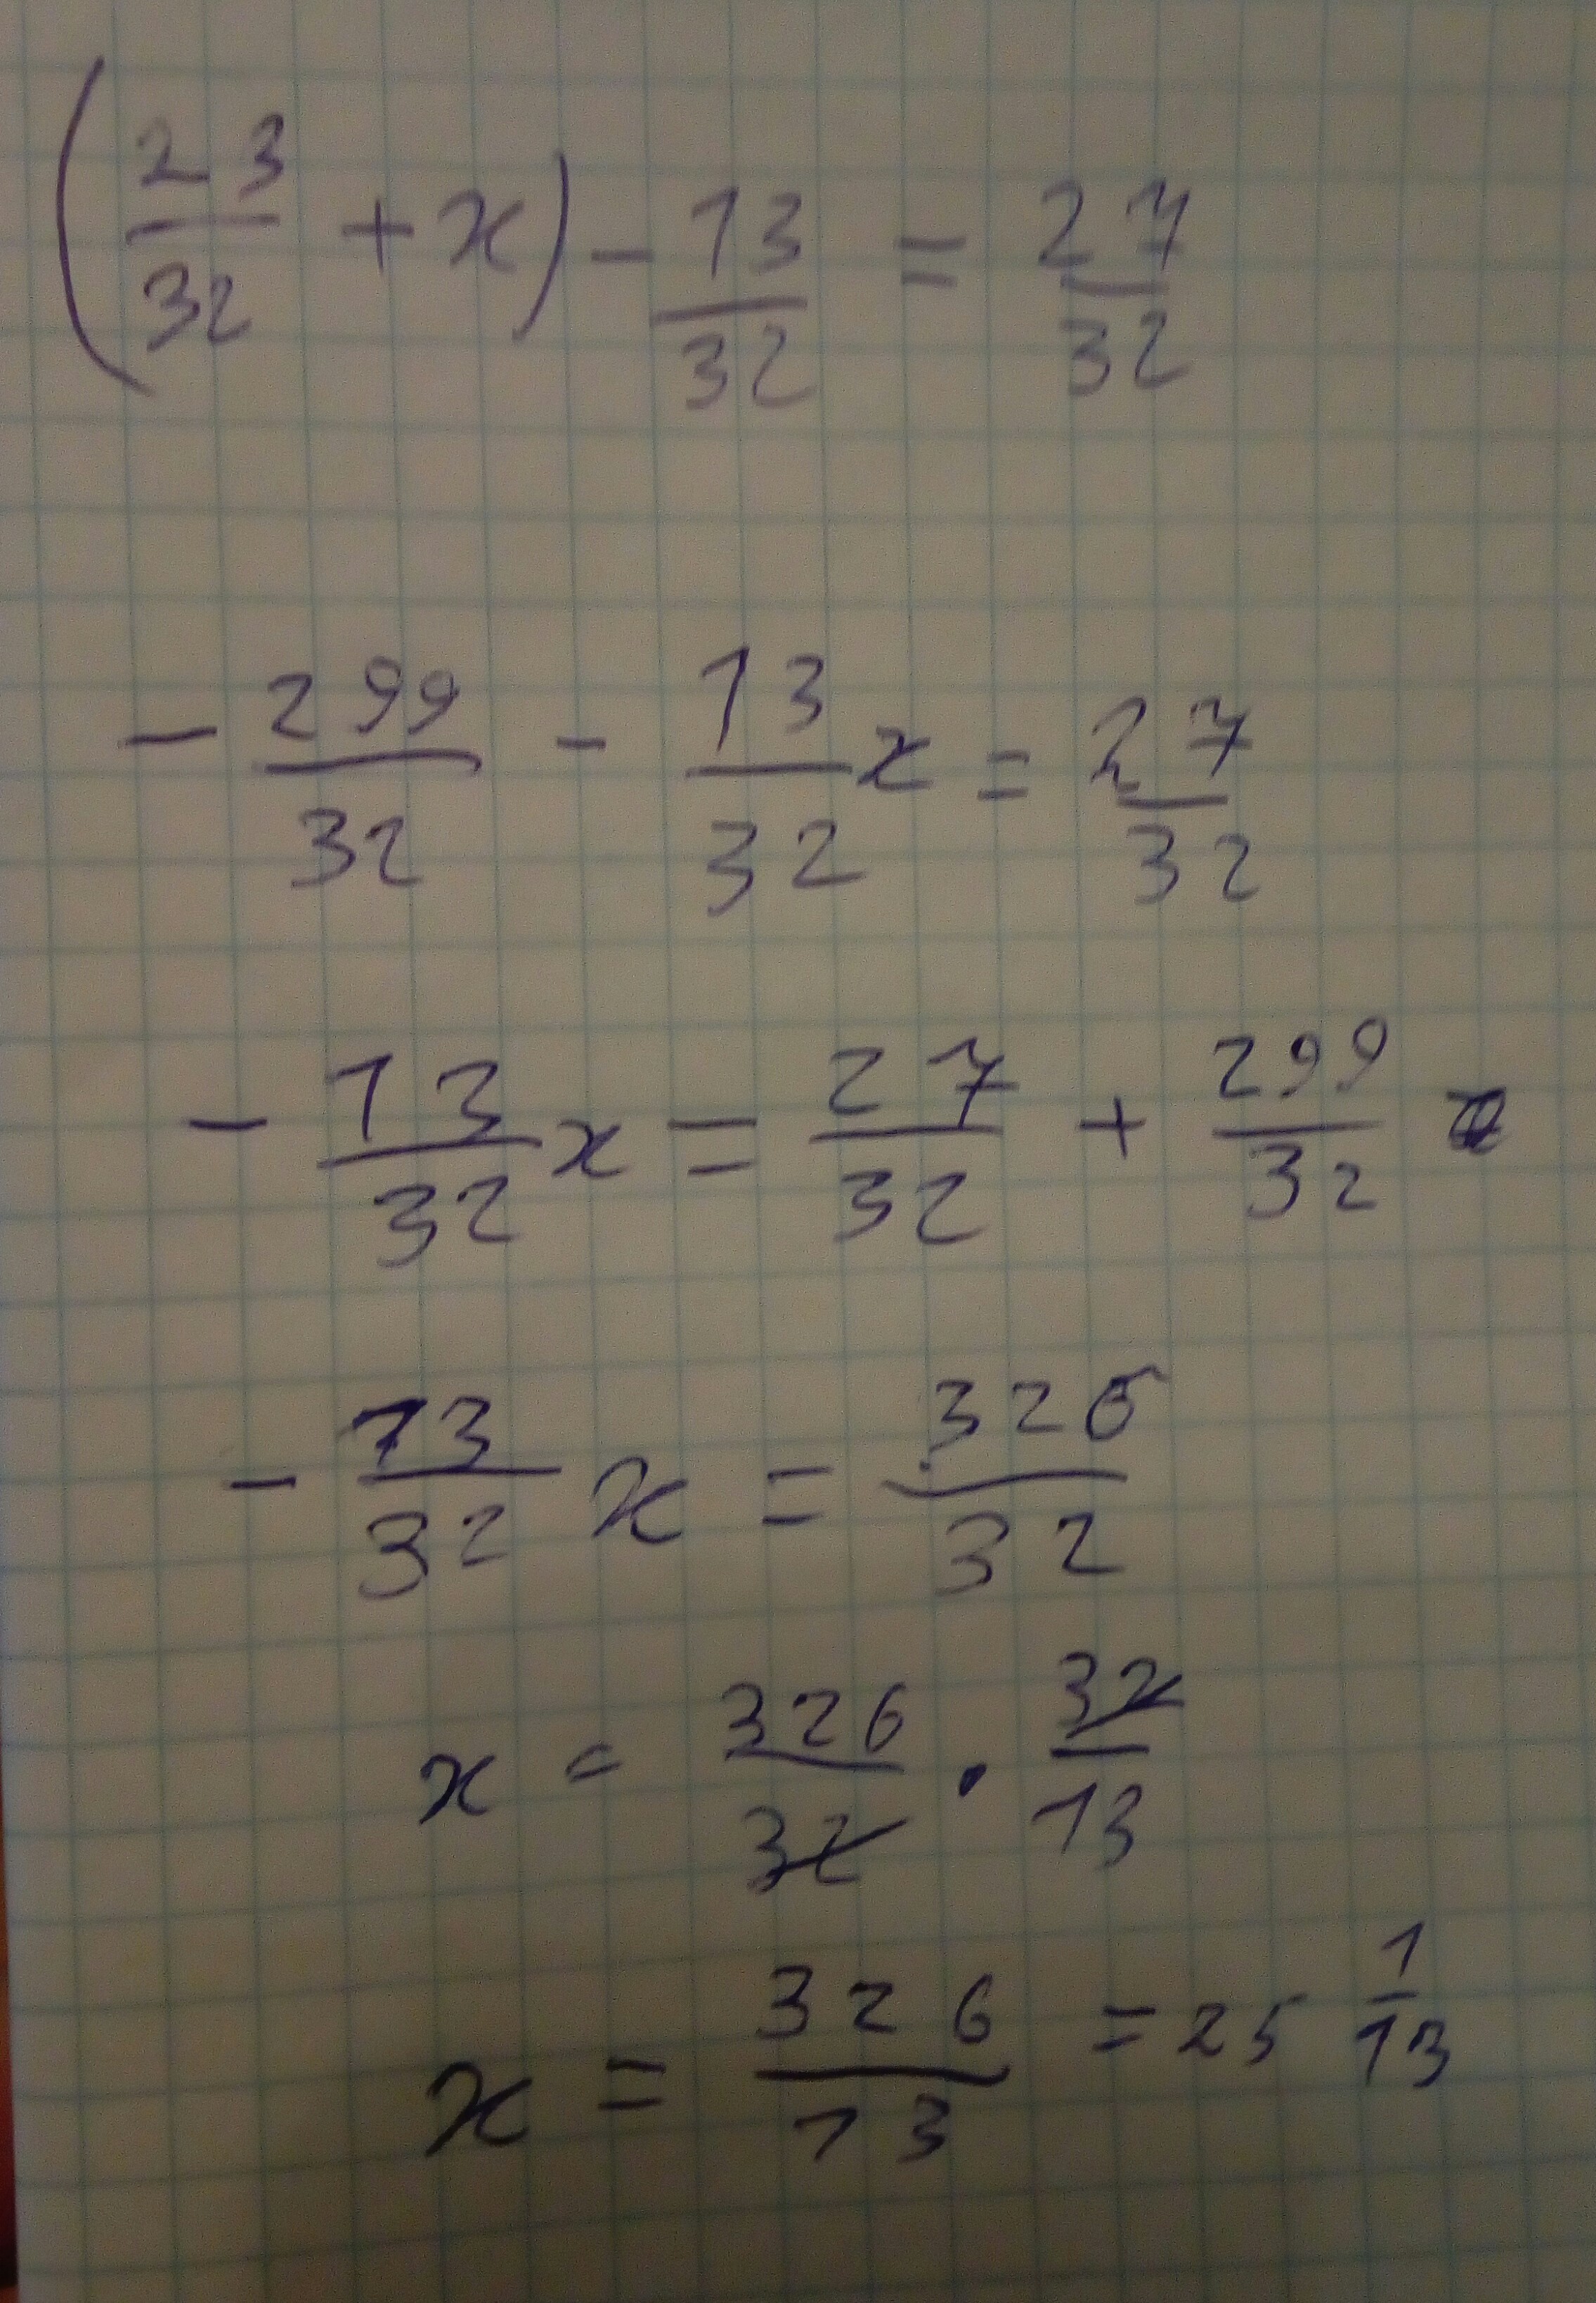 (23/32 + x) - 13/32 = 27/32
- 299/32 - 13/32 x = 27/32
- 13/32 x = 27/32 + 299/32
- 13/32 x = 326/32
x = 326/32 · 32/13
x = 326/13 = 25 1/13